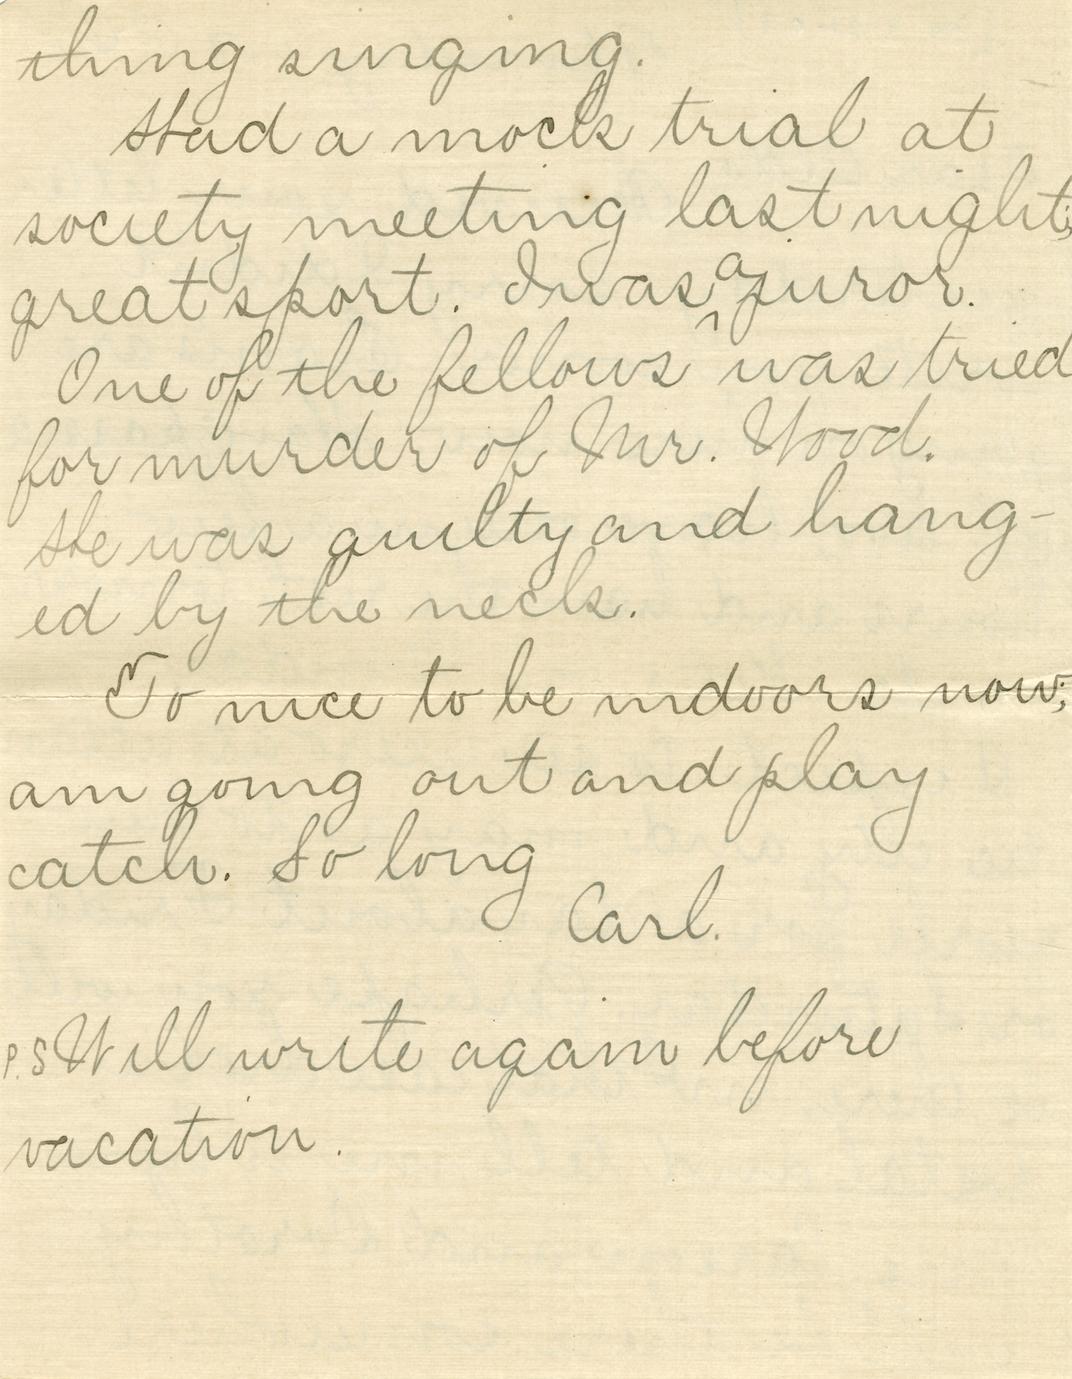 thing singing.
Had a mock trial at
society meeting last night;
great sport. I was a juror.
One of the fellows was tried
for murder of Mr. Wood.
He was guilty and hang-
ed by the neck.
To nice to be indoors now;
am going out and play
catch. So long
Carl.
P.S Will write again before
vacation.